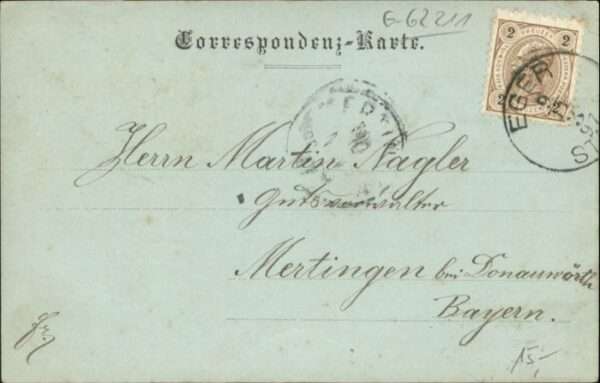 G-62211
Correspondenz-Karte.
2 2
2 2
EGER
MERTIN
Herrn Martin Nagler
Gutsverwalter
Mertingen bei Donauwörth
Bayern.
15,-